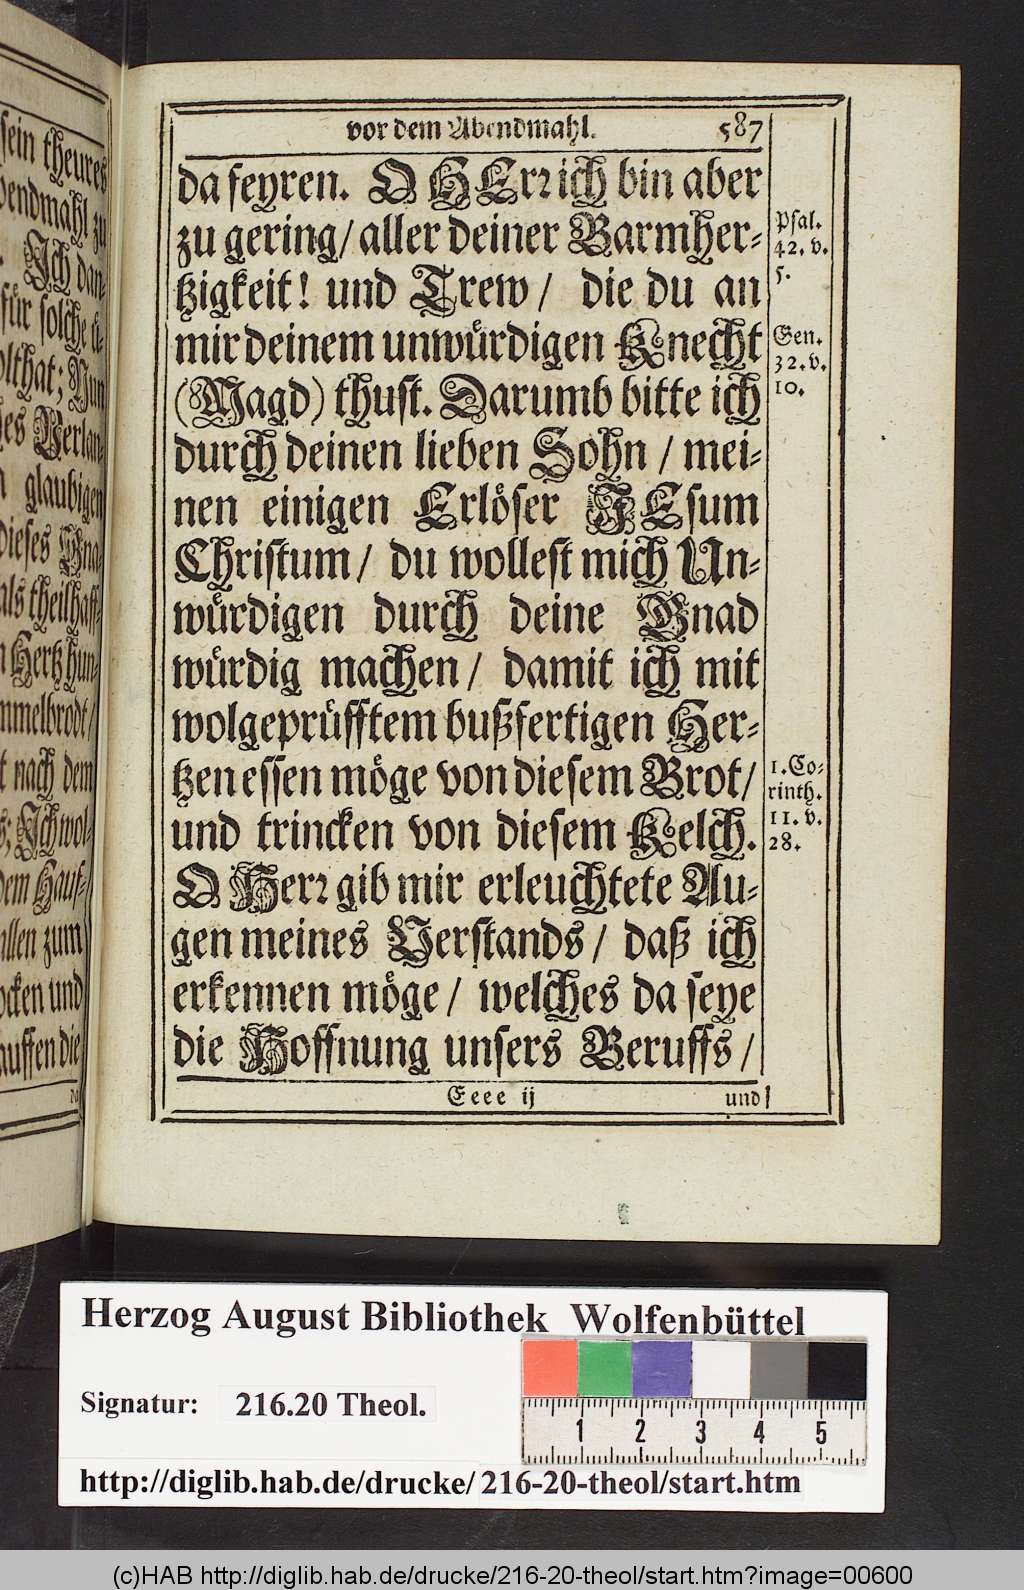 vor dem Abendmahl. 587
da feyren. O HErꝛ ich bin aber
zu gering/ aller deiner Barmher-
tzigkeit! und Trew/ die du an
mir deinem unwürdigen Knecht
(Magd) thust. Darumb bitte ich
durch deinen lieben Sohn/ mei-
nen einigen Erlöser JEsum
Christum/ du wollest mich Un-
würdigen durch deine Gnad
würdig machen/ damit ich mit
wolgeprüfftem bußfertigen Her-
tzen essen möge von diesem Brot/
und trincken von diesem Kelch.
O Herꝛ gib mir erleuchtete Au-
gen meines Verstands/ daß ich
erkennen möge/ welches da seye
die Hoffnung unsers Beruffs/
Eeee ij und
Psal.
42. v.
5.
Gen.
32. v.
10.
1. Co-
rinth.
11. v.
28.
sein theures
bendmahl zu
Ich dan-
für solche
olthat; Nun
des Verlan-
glaubigen
dieses Gna-
als theilhaff-
Hertz hun-
mmelbrodt/
t nach dem
s; Ich wol-
dem Hauf-
allen zum
ocken und
auffen die
da
Herzog August Bibliothek Wolfenbüttel
Signatur: 216.20 Theol.
1 2 3 4 5
http://diglib.hab.de/drucke/216-20-theol/start.htm
(c)HAB http://diglib.hab.de/drucke/216-20-theol/start.htm?image=00600